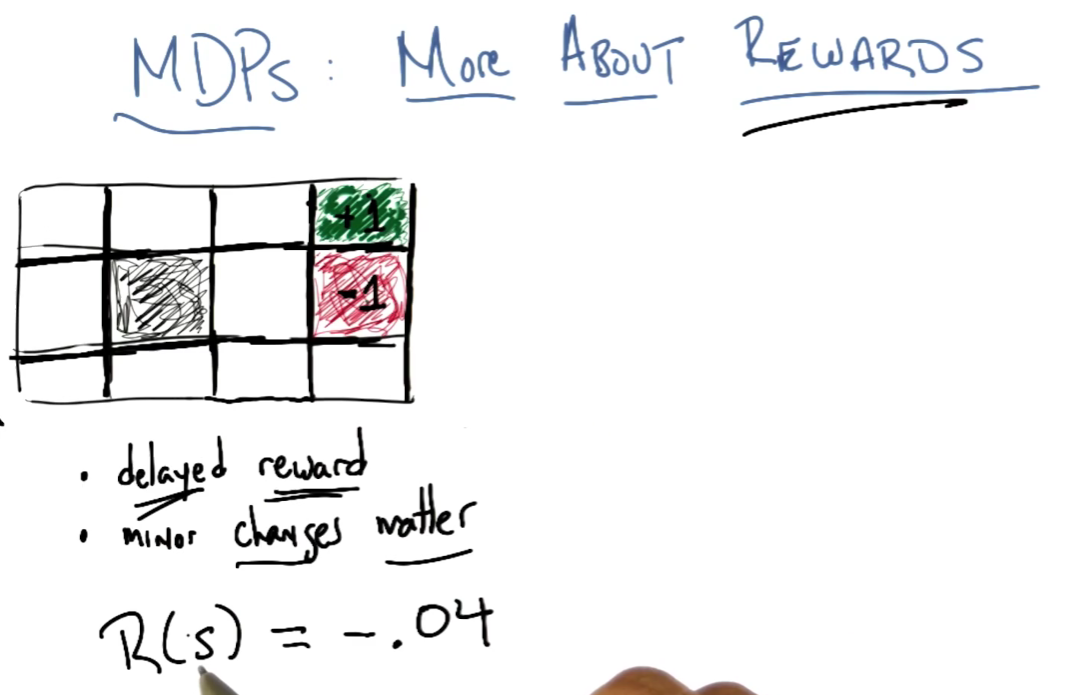 MDPs: More About Rewards
+1
-1
• delayed reward
• minor changes matter
R(s) = -.04